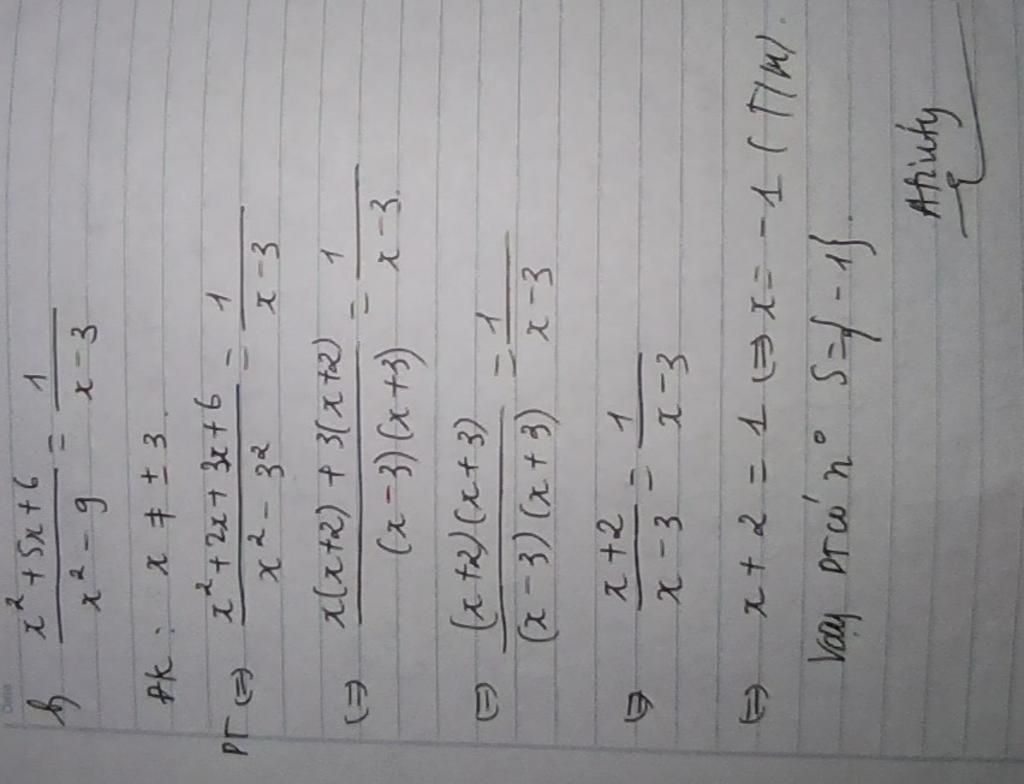 b) x² + 5x + 6 / x² - 9 = 1 / x - 3
ĐK: x ≠ ± 3.
PT ⇔ x² + 2x + 3x + 6 / x² - 3² = 1 / x - 3
⇔ x(x+2) + 3(x+2) / (x-3)(x+3) = 1 / x - 3.
⇔ (x+2)(x+3) / (x-3)(x+3) = 1 / x - 3
⇔ x+2 / x-3 = 1 / x-3
⇔ x + 2 = 1 ⇔ x = -1 (T/m).
Vậy PT có n° S={-1}.